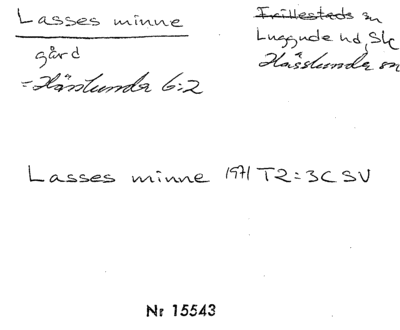 Lasses minne
gård
= Hässlunda 6:2
Frillestads sn
Luggude hd, Sk
Hässlunda sn
Lasses minne 1971 T2:3C SV
Nr 15543